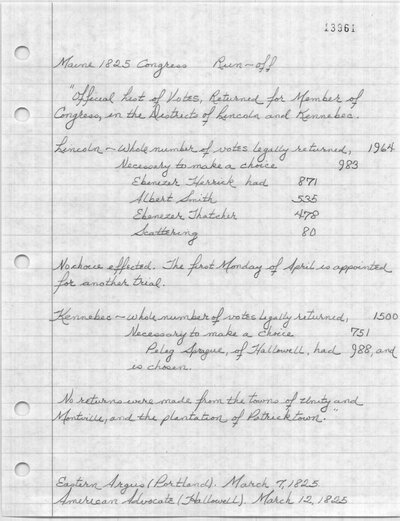 13361
Maine 1825 Congress Run-off
"Official List of Votes, Returned for Member of
Congress, in the Districts of Lincoln and Kennebec.
Lincoln - Whole number of votes legally returned, 1964
Necessary to make a choice 983
Ebenezer Herrick had 871
Albert Smith 535
Ebenezer Thatcher 478
Scattering 80
No choice effected. The first Monday of April is appointed
for another trial.
Kennebec - whole number of votes legally returned, 1500
Necessary to make a choice 751
Peleg Sprague, of Hallowell, had 988, and
is chosen.
No returns were made from the towns of Unity and
Montville, and the plantation of Patricktown."
Eastern Argus (Portland). March 7, 1825
American Advocate (Hallowell). March 12, 1825